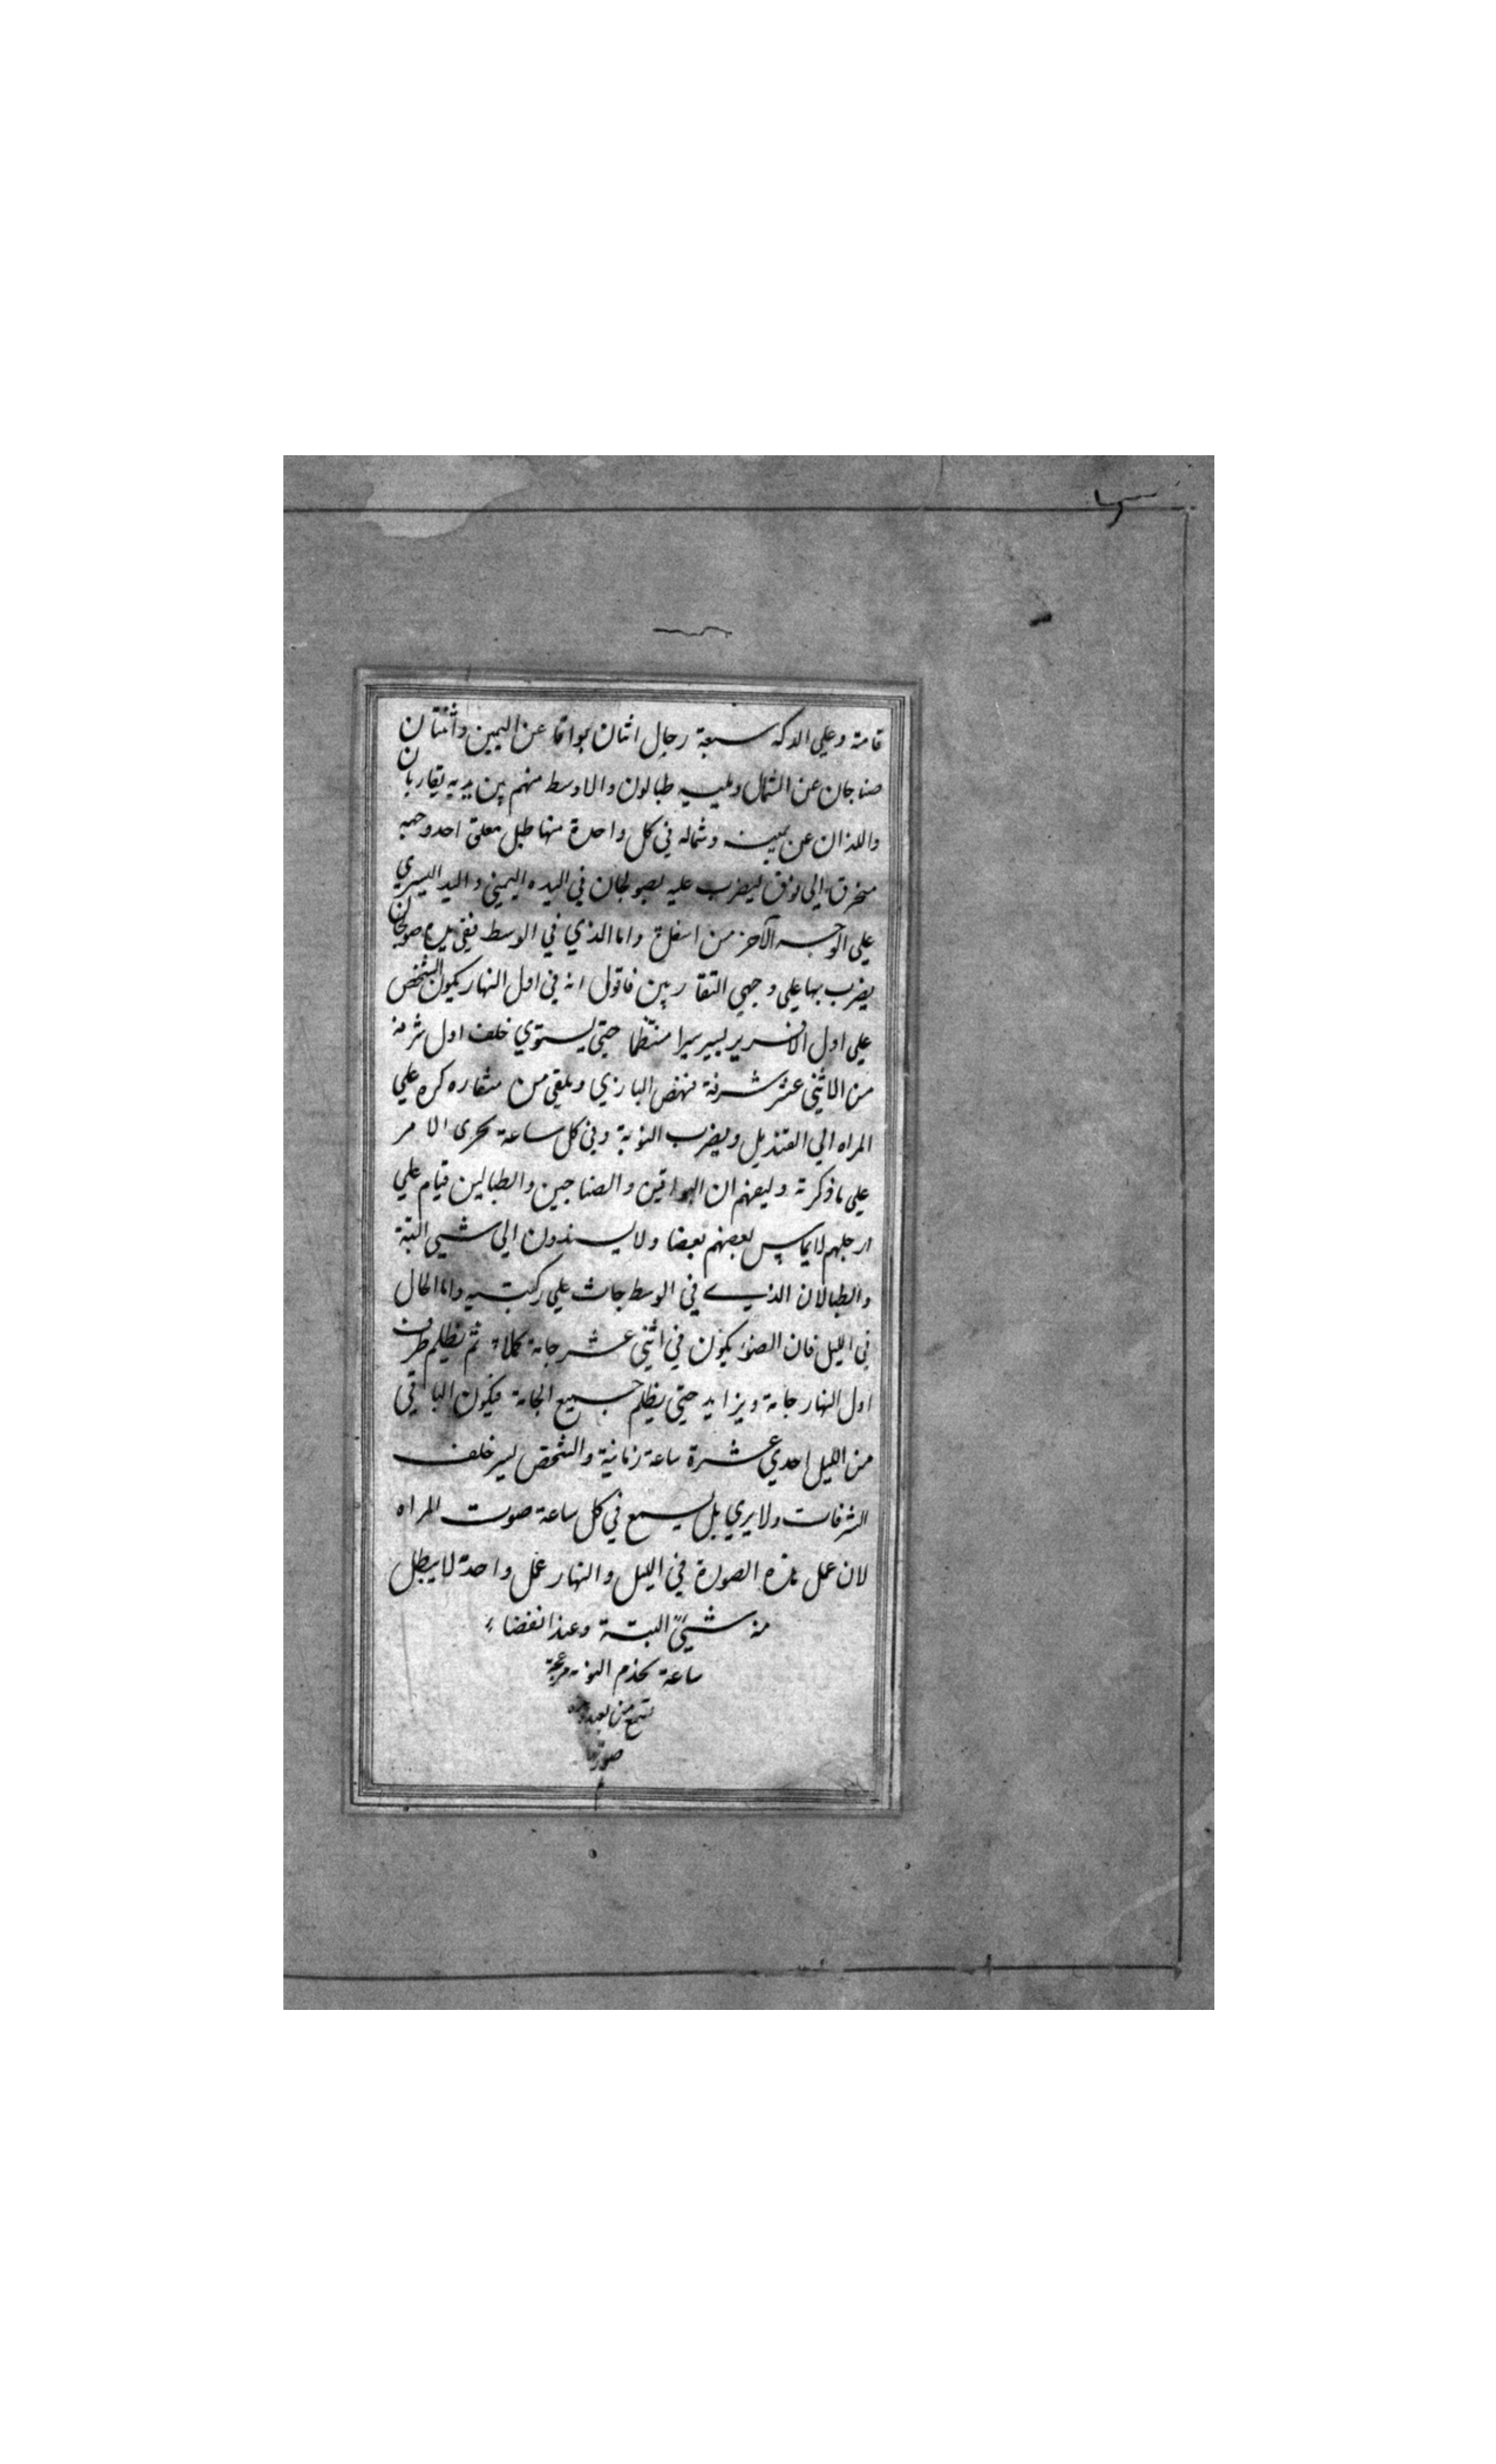 قامة وعلي الدكه سبعة رجال اثنان بواقا عن اليمين واثنتان
صناجان عن الشمال ويليه طبالون والاوسط منهم بين يديه نقاربان
واللذان عن يمينه وشماله في كل واحدة منها طبل معلق احد وجهيه
منحرق الي فوق ليضرب عليه بصولجان في اليده اليمني واليد اليسري
علي الوجه الآخر من اسفله واما الذي في الوسط ففي يده صولجان
يضرب بها علي وجهي النقاربين فاقول انه في اول النهار يكون الشخص
علي اول الافريز يسير سيرا منتظما حتي يستوي خلف اول شرفة
من الاثني عشر شرفة فينهض البازي ويلقي من منقاره كره علي
المراه الي القنديل ويضرب النوبة وفي كل ساعة يجرى الامر
علي ما ذكرته وليفهم ان البواقين والصناجين والطبالين قيام علي
ارجلهم لا يماس بعضهم بعضا ولا يسندون الي شيي البتة
والطبالان الذي في الوسط جاث علي ركبتيه واما الحال
في الليل فان الضوء يكون في اثني عشر جامة كملا ثم يظلم طرف
اول النهار جامة ويزايد حتي يظلم جميع الجامة فيكون الباقي
من الليل احدي عشرة ساعة زمانية والشخص يسير خلف
الشرفات ولا يري بل يسمع في كل ساعة صوت المراه
لان عمل هذه الصورة في الليل والنهار عمل واحدة لا يبطل
منه شيئ البتة وعند انقضاء
ساعة يخدم النوبة مزعجة
تسمع من بعد وهذه
صورتها